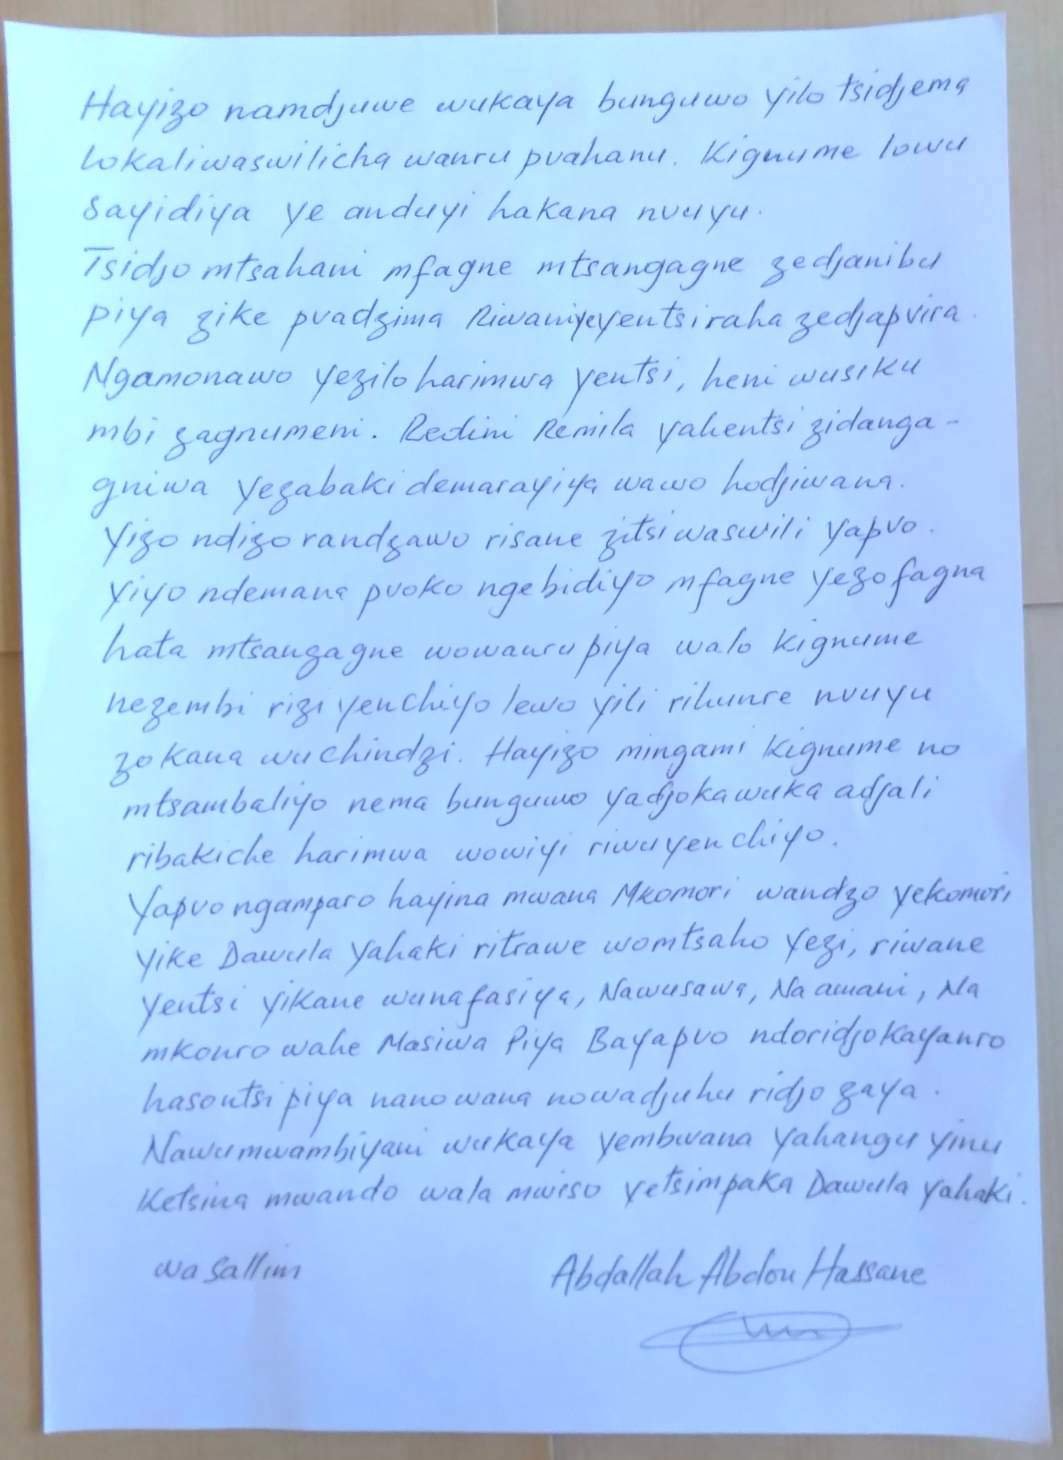 Hayizo namdjuwe wukaya bunguwo yilo tsidjema
lokaliwaswilicha wanru pvahanu. Kignume lowu
Sayidiya ye anduyi hakana nvuyu.
Tsidjo mtsahani mfagne mtsangagne zedjanibu
piya zike pvadzima Riwaniyeyentsi raha zedjapvira.
Ngamonawo yezilo harimwa yentsi, heni wusiku
mbi zagnumeni. Redini Remila yahentsi zidanga-
gniwa yezabaki demarayiya wawo hodjiwana.
Yizo ndizo randzawo risane zitsi waswili yapvo.
Yiyo ndemana pvoko ngebidiyo mfagne yezofagna
hata mtsangagne wowanru piya walo kignume
nezembi rizi yenchiyo lewo yili rihunre nvuyu
zokana wuchindzi. Hayizo mingami kignume no
mtsambaliyo nema bunguwo yadjokawuka adjali
ribakiche harimwa wowiyi riwuyenchiyo.
Yapvo ngamparo hayina mwana Mkomori wandzo yekomori
yike Dawula yahaki ritrawe womtsaho yezi, riwane
yentsi yikane wunafasiya, Nawusawa, Na amani, Na
mkonro wahe Masiwa Piya Bayapvo ndoridjokayanro
hasontsi piya nanowana nowadjuhu ridjo zaya.
Nawumwambiyani wukaya yembwana yahangu yinu
Ketsina mwando wala mwiso yetsimpaka Dawula yahaki.
wa sallim
Abdallah Abdou Hassane